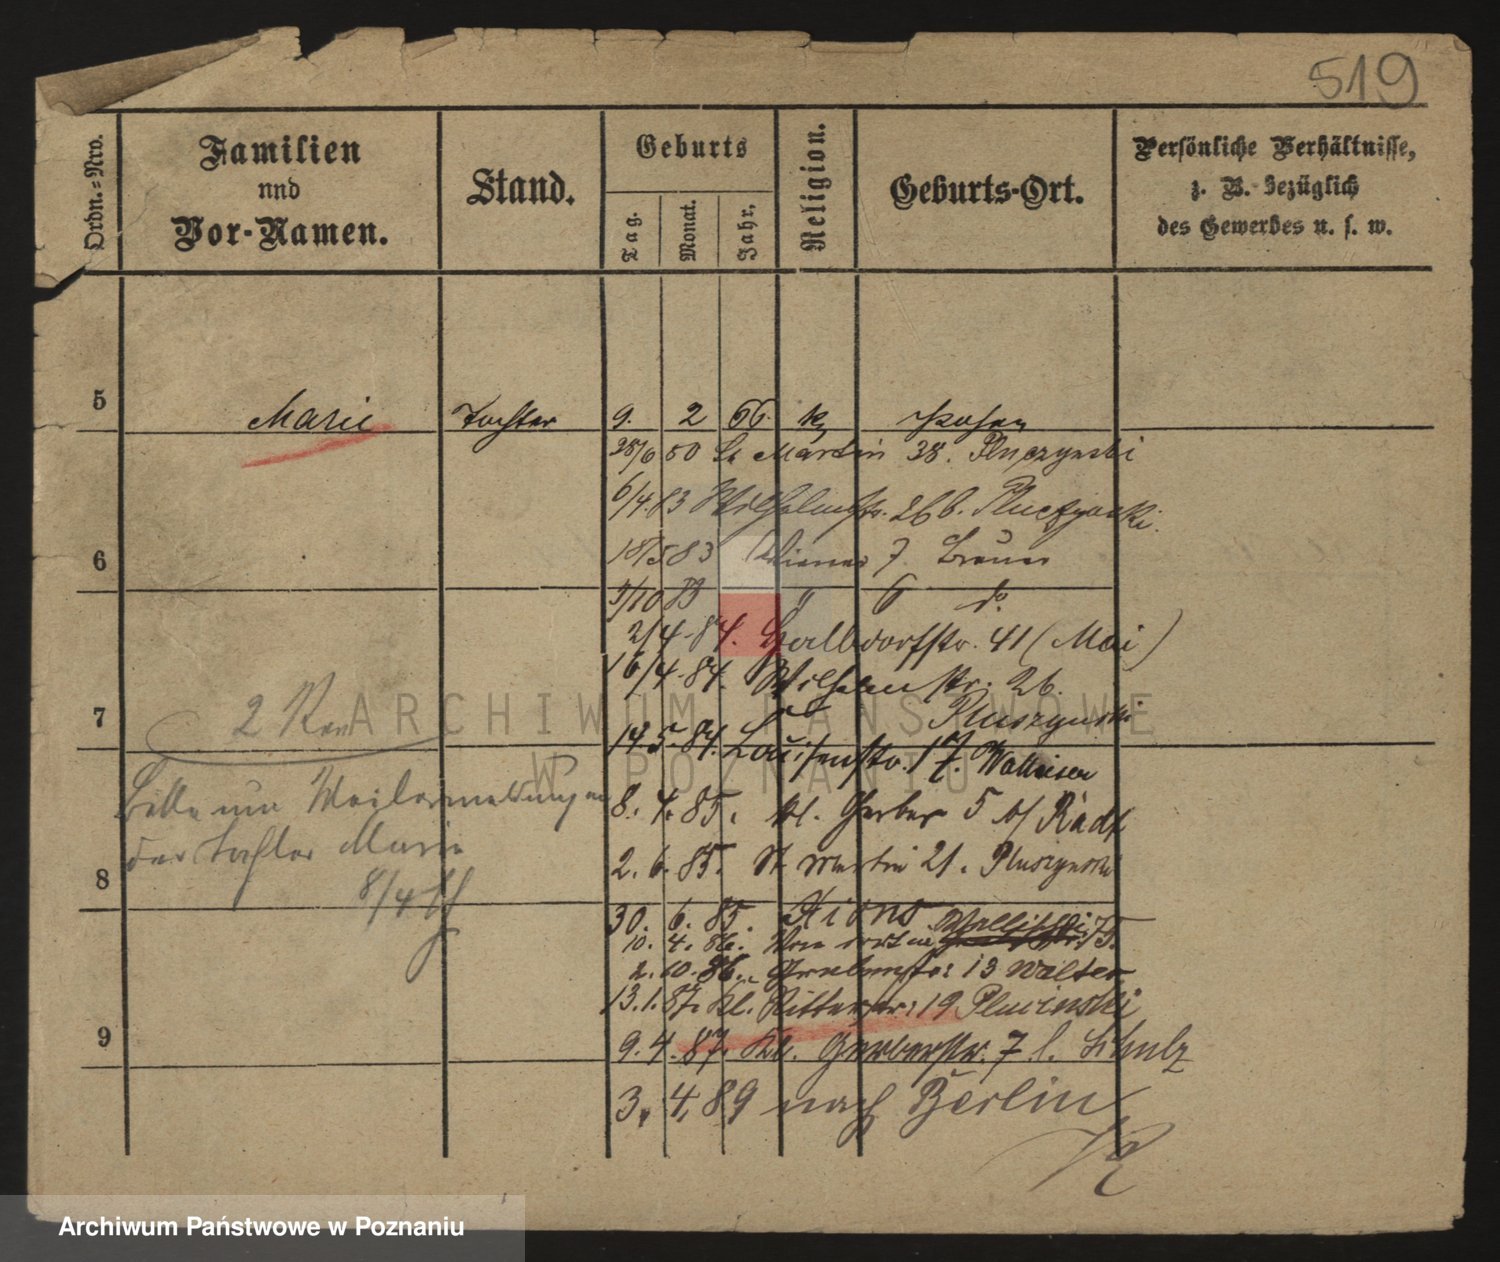 519
Ordn.=Nro.
Familien
und
Vor-Namen.
Stand.
Geburts
Tag.
Monat.
Jahr.
Religion.
Geburts-Ort.
Persönliche Verhältnisse,
z. B. bezüglich
des Gewerbes u. s. w.
5 Marie Tochter 9. 2 66. k. Posen
28/6 80 St Martin 38. Pluczynski
6/4. 83 Wilhelmstr. 26b. Pluczynski.
6
18/5 83 Wiener 7 Braun
3/10 83 " 6 do.
2/4. 84. Halbdorfstr. 41 (Mai)
16/4. 84. Wilhelmstr. 26.
Pluszynski
7
2 Rec
14. 5. 84. Louisenstr. 17. Wallisen
Bitte um Weitermeldung
der Tochter Marie
8/4
8. 4. 85. kl. Gerber 5 b/ Radt
8
2. 6. 85. St Martin 21. Pluszynski
30. 6. 85. Xions
10. 4. 86. Von dort Wallischei 75.
2. 10. 86. Grabenstr: 13 Walter
13. 1. 87. Kl. Ritterstr: 19 Plucinski
9
9. 4. 87. Kl. Gerberstr. 7 b. Schulz
3. 4. 89 nach Berlin
ARCHIWUM PAŃSTWOWE
W POZNANIU
Archiwum Państwowe w Poznaniu